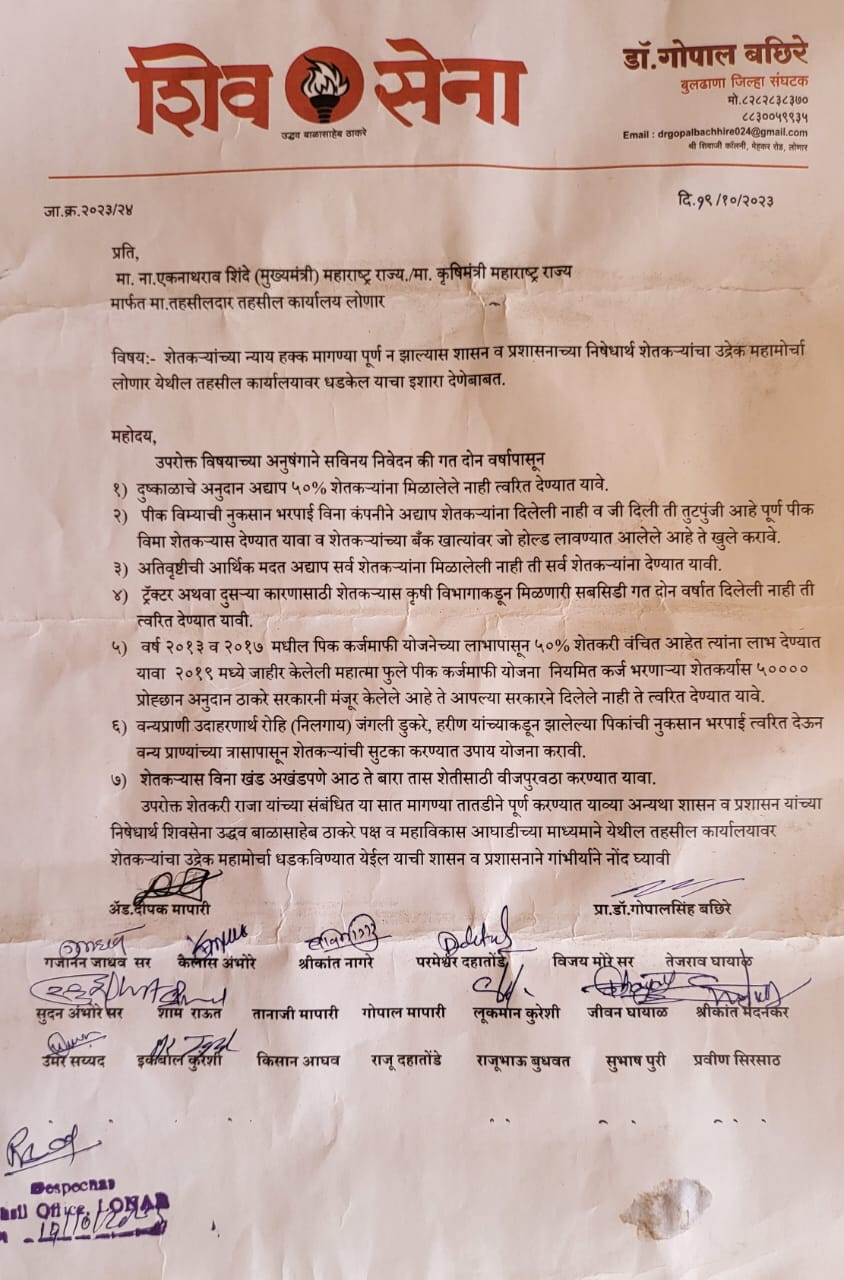 शिव सेना
उद्धव बाळासाहेब ठाकरे
डॉ.गोपाल बछिरे
बुलढाणा जिल्हा संघटक
मो.८२८२८३८३७०
८८३००५९९३५
Email : drgopalbachhire024@gmail.com
श्री शिवाजी कॉलनी, मेहकर रोड, लोणार
जा.क्र.२०२३/२४
दि.१९/१०/२०२३
प्रति,
मा. ना.एकनाथराव शिंदे (मुख्यमंत्री) महाराष्ट्र राज्य./मा. कृषिमंत्री महाराष्ट्र राज्य
मार्फत मा.तहसीलदार तहसील कार्यालय लोणार
विषय:- शेतकऱ्यांच्या न्याय हक्क मागण्या पूर्ण न झाल्यास शासन व प्रशासनाच्या निषेधार्थ शेतकऱ्यांचा उद्रेक महामोर्चा
लोणार येथील तहसील कार्यालयावर धडकेल याचा इशारा देणेबाबत.
महोदय,
उपरोक्त विषयाच्या अनुषंगाने सविनय निवेदन की गत दोन वर्षापासून
१) दुष्काळाचे अनुदान अद्याप ५०% शेतकऱ्यांना मिळालेले नाही त्वरित देण्यात यावे.
२) पीक विम्याची नुकसान भरपाई विना कंपनीने अद्याप शेतकऱ्यांना दिलेली नाही व जी दिली ती तुटपुंजी आहे पूर्ण पीक
विमा शेतकऱ्यास देण्यात यावा व शेतकऱ्यांच्या बँक खात्यांवर जो होल्ड लावण्यात आलेले आहे ते खुले करावे.
३) अतिवृष्टीची आर्थिक मदत अद्याप सर्व शेतकऱ्यांना मिळालेली नाही ती सर्व शेतकऱ्यांना देण्यात यावी.
४) ट्रॅक्टर अथवा दुसऱ्या कारणासाठी शेतकऱ्यास कृषी विभागाकडून मिळणारी सबसिडी गत दोन वर्षात दिलेली नाही ती
त्वरित देण्यात यावी.
५) वर्ष २०१३ व २०१७ मधील पिक कर्जमाफी योजनेच्या लाभापासून ५०% शेतकरी वंचित आहेत त्यांना लाभ देण्यात
यावा २०१९ मध्ये जाहीर केलेली महात्मा फुले पीक कर्जमाफी योजना नियमित कर्ज भरणाऱ्या शेतकर्यास ५००००
प्रोह्छान अनुदान ठाकरे सरकारनी मंजूर केलेले आहे ते आपल्या सरकारने दिलेले नाही ते त्वरित देण्यात यावे.
६) वन्यप्राणी उदाहरणार्थ रोहि (निलगाय) जंगली डुकरे, हरीण यांच्याकडून झालेल्या पिकांची नुकसान भरपाई त्वरित देऊन
वन्य प्राण्यांच्या त्रासापासून शेतकऱ्यांची सुटका करण्यात उपाय योजना करावी.
७) शेतकऱ्यास विना खंड अखंडपणे आठ ते बारा तास शेतीसाठी वीजपुरवठा करण्यात यावा.
उपरोक्त शेतकरी राजा यांच्या संबंधित या सात मागण्या तातडीने पूर्ण करण्यात याव्या अन्यथा शासन व प्रशासन यांच्या
निषेधार्थ शिवसेना उद्धव बाळासाहेब ठाकरे पक्ष व महाविकास आघाडीच्या माध्यमाने येथील तहसील कार्यालयावर
शेतकऱ्यांचा उद्रेक महामोर्चा धडकविण्यात येईल याची शासन व प्रशासनाने गांभीर्याने नोंद घ्यावी
ॲड.दीपक मापारी प्रा.डॉ.गोपालसिंह बछिरे
गजानन जाधव सर कैलास अंभोरे श्रीकांत नागरे परमेश्वर दहातोंडे विजय मोरे सर तेजराव घायाळ
सुदन अंभोरे सर शाम राऊत तानाजी मापारी गोपाल मापारी लूकमान कुरेशी जीवन घायाळ श्रीकांत मदनकर
उमर सय्यद इकबाल कुरेशी किसान आघव राजू दहातोंडे राजूभाऊ बुधवत सुभाष पुरी प्रवीण सिरसाठ
Despechas
Office, LONAR
19/10/2023